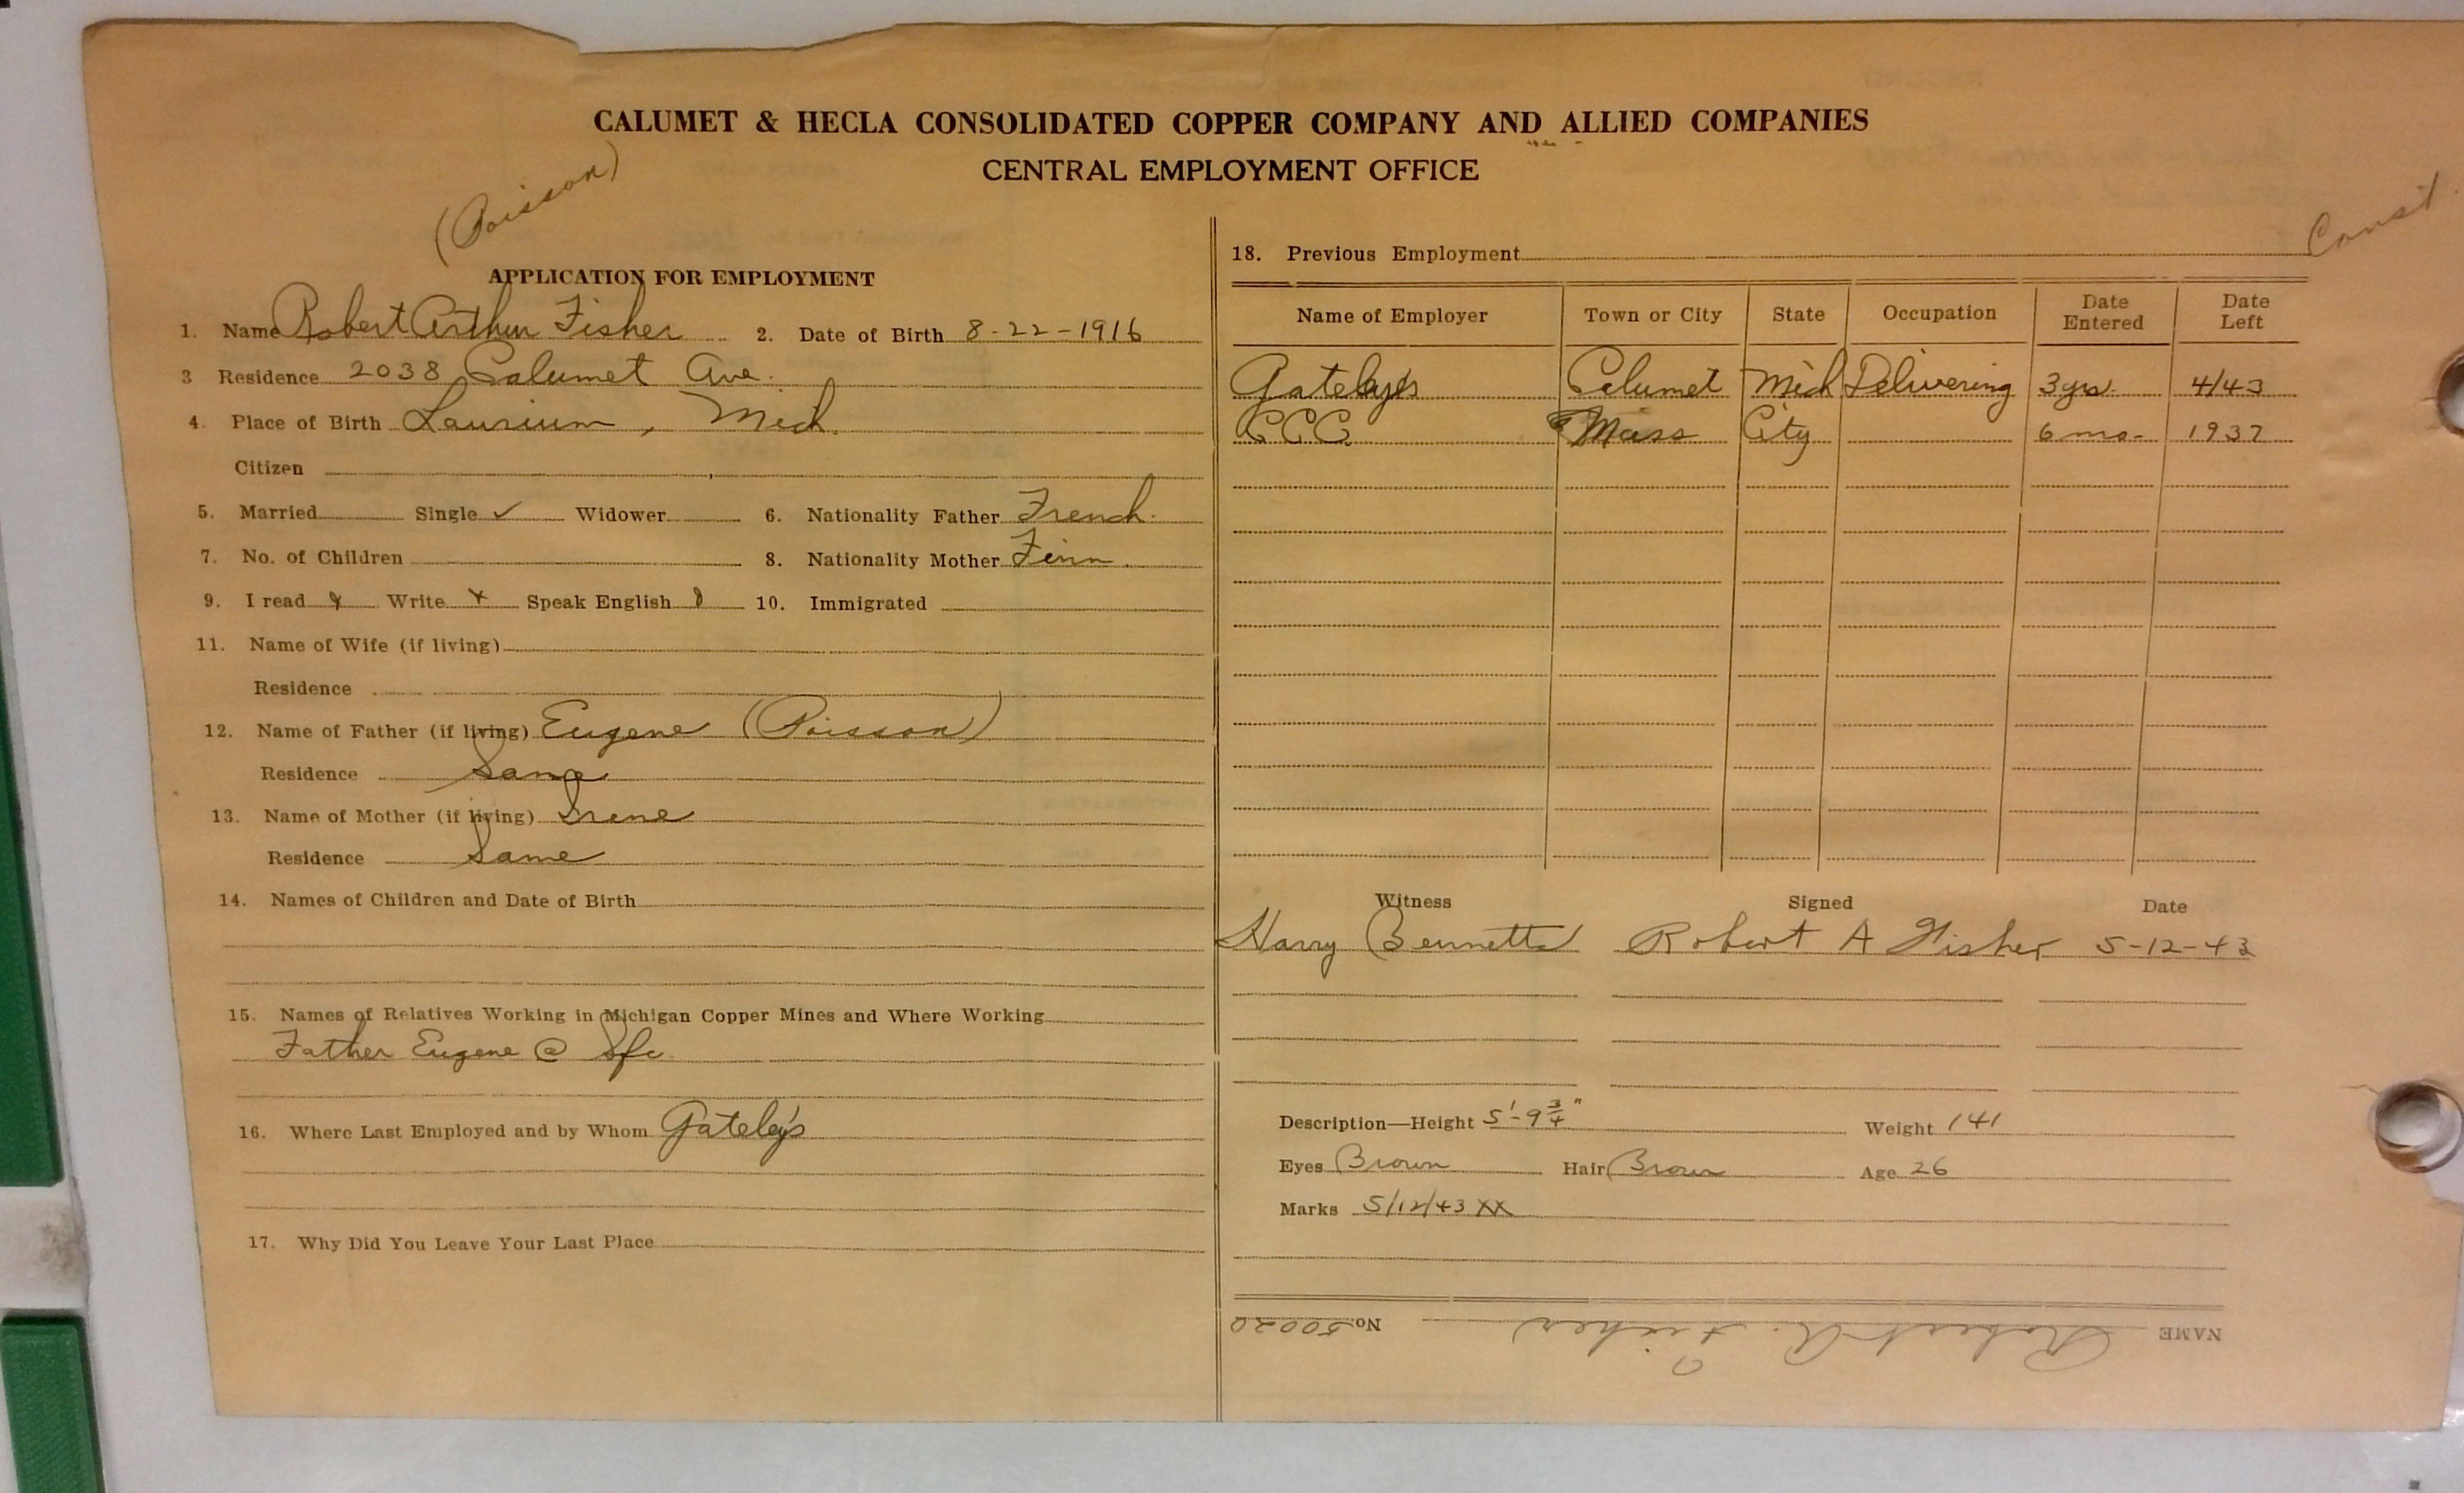 CALUMET & HECLA CONSOLIDATED COPPER COMPANY AND ALLIED COMPANIES
CENTRAL EMPLOYMENT OFFICE
(Poisson)
APPLICATION FOR EMPLOYMENT
1. Name Robert Arthur Fisher 2. Date of Birth 8-22-1916
3 Residence 2038 Calumet Ave.
4. Place of Birth Laurium, Mich.
Citizen
5. Married Single ✓ Widower 6. Nationality Father French
7. No. of Children 8. Nationality Mother Finn
9. I read Write Speak English 10. Immigrated
11. Name of Wife (if living)
Residence
12. Name of Father (if living) Eugene (Poisson)
Residence Same
13. Name of Mother (if living) Irene
Residence Same
14. Names of Children and Date of Birth
15. Names of Relatives Working in Michigan Copper Mines and Where Working
Father Eugene @ Sfc.
16. Where Last Employed and by Whom Gateley's
17. Why Did You Leave Your Last Place
Const.
18. Previous Employment
Name of Employer Town or City State Occupation Date Entered Date Left
Gateley's Calumet Mich Delivering 3 yrs. 4/43
CCC Mass City 6 mo. 1937
Witness Signed Date
Harry Bennetts Robert A Fisher 5-12-43
Description—Height 5'-9 3/4" Weight 141
Eyes Brown Hair Brown Age 26
Marks 5/12/43 XX
NAME Robert A. Fisher No. 50020